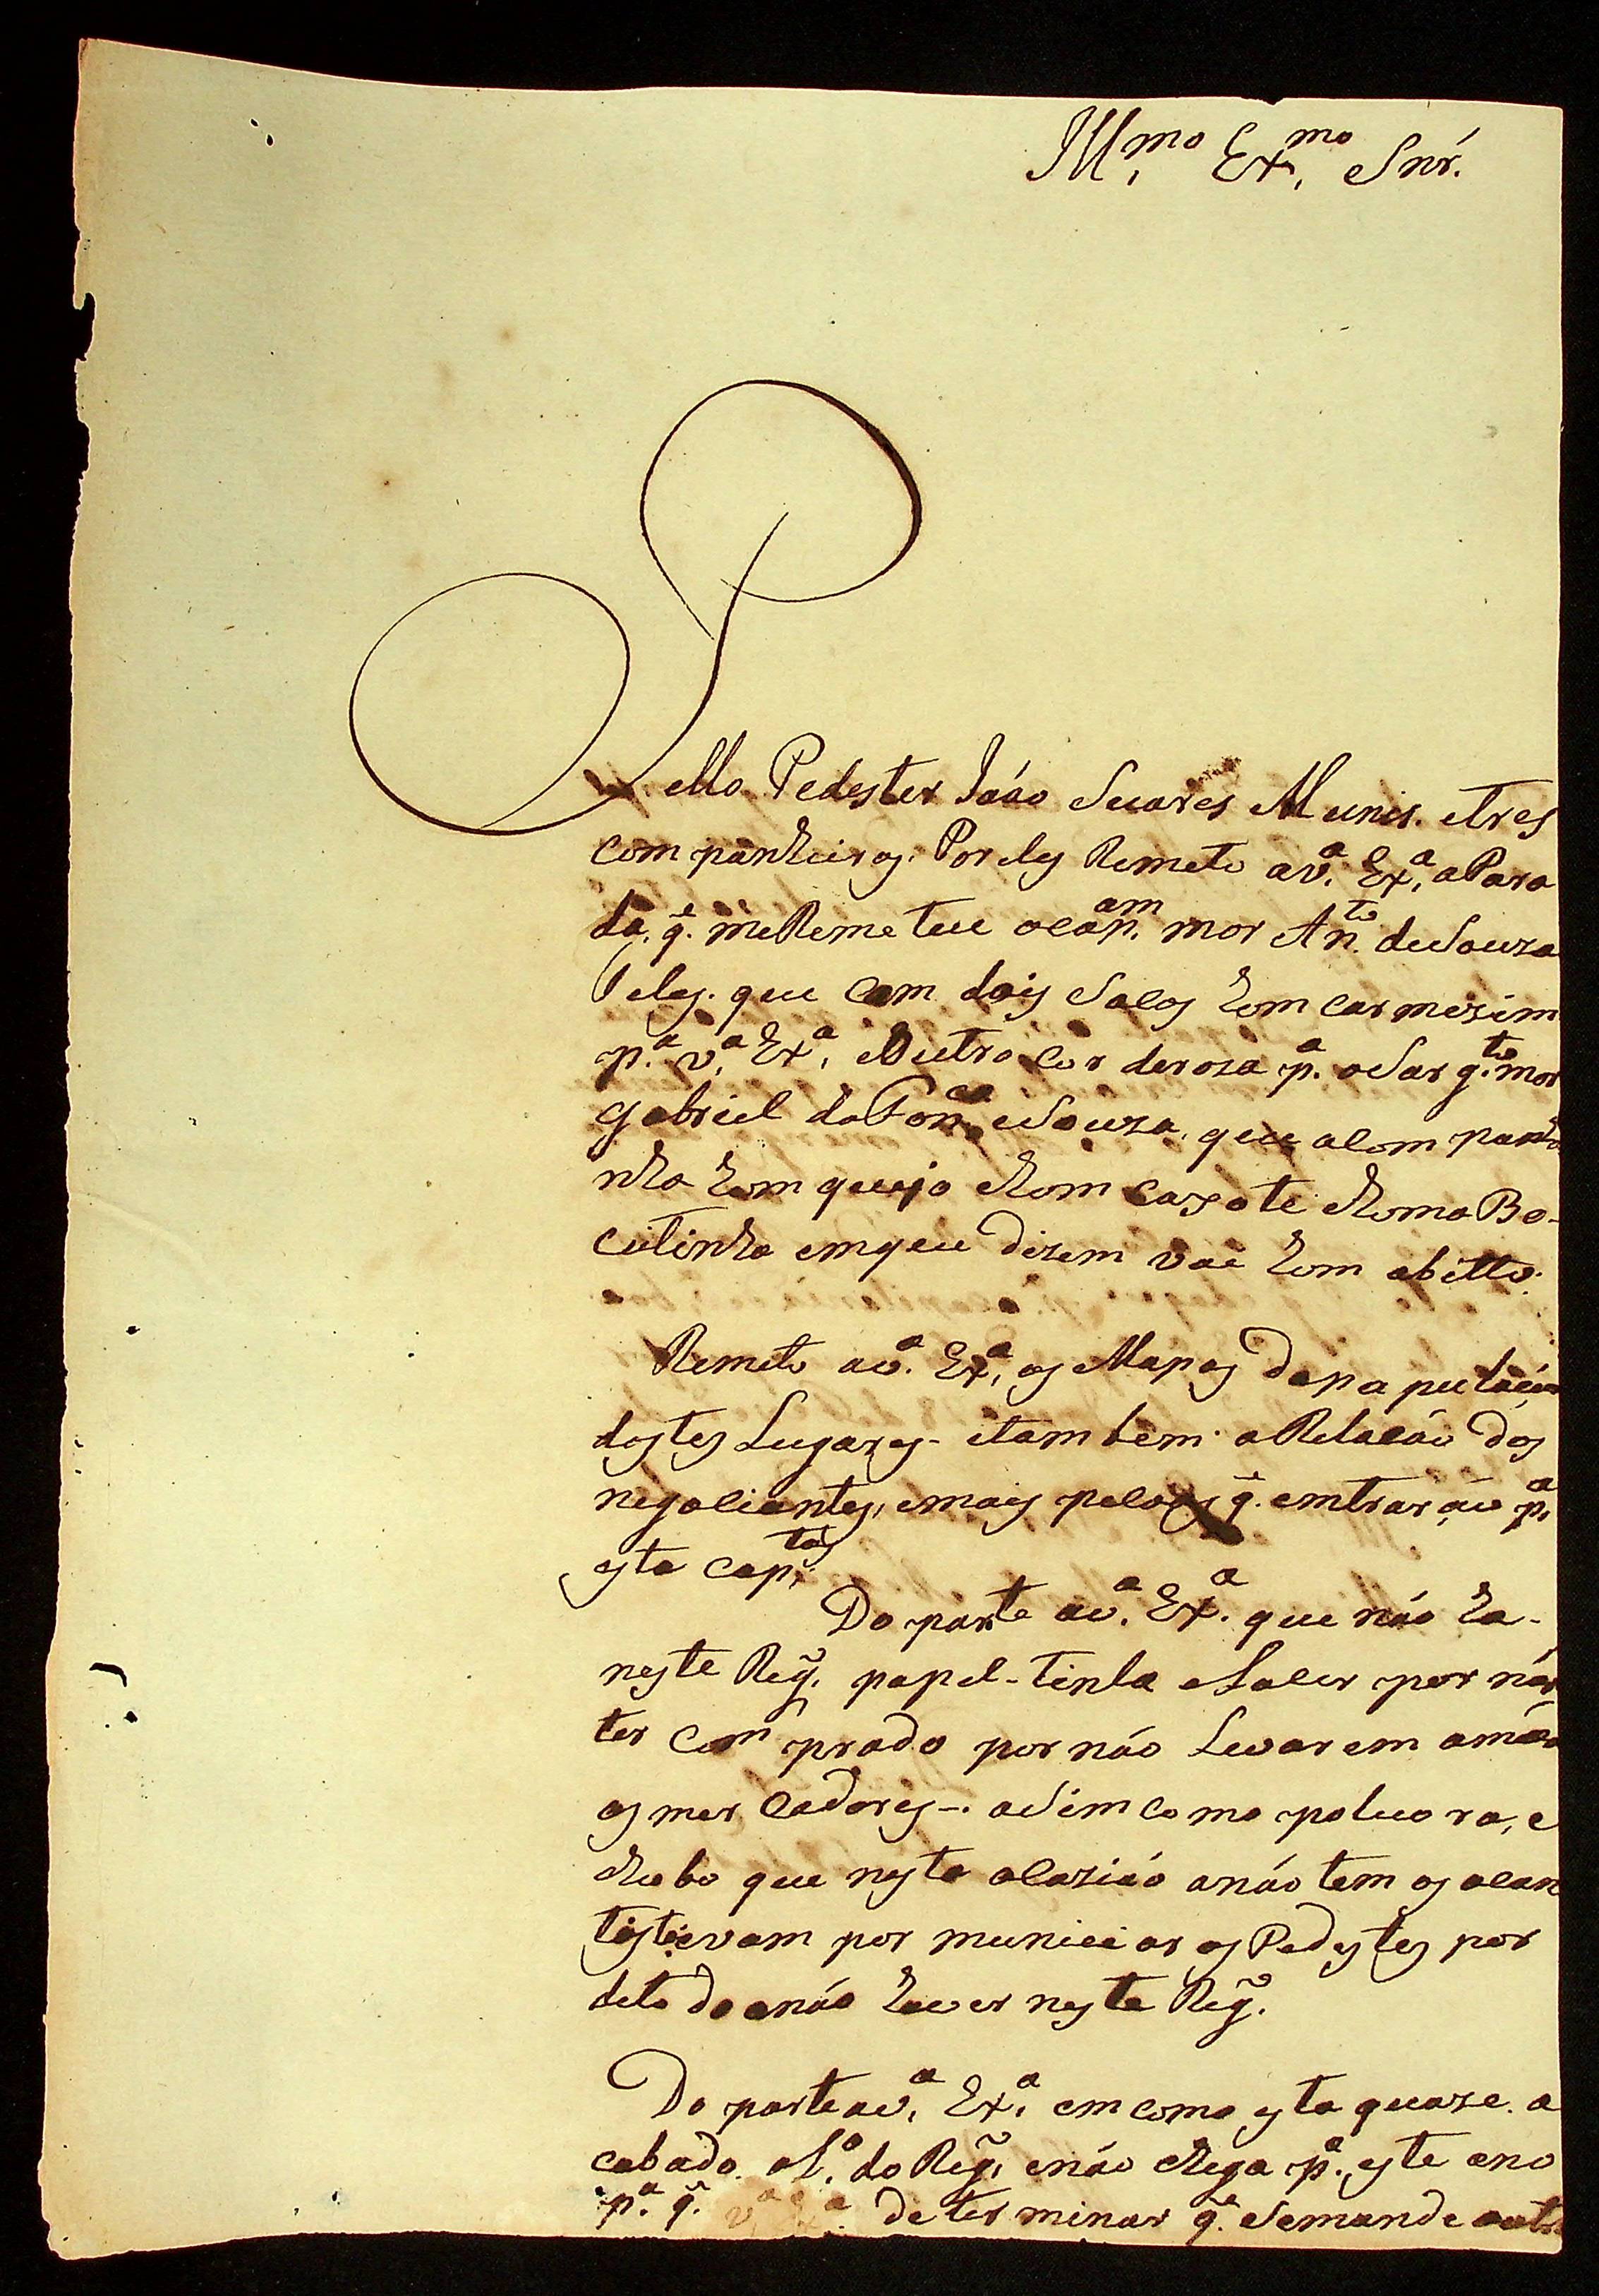 Ill.mo Ex.mo Snr.
Pello Pedester Joáo Suares Munis. e tres
companheiros. Por eles Remeto a v.a Ex.a a Para
da, q.e me Remeteu o cap.am mor An.to de Souza
Teles. que com dois Sacos hom carmezim
p.a v.a Ex.a, e outro cor de roza p.a o Sarg.to mor
Gabriel da Fon.ca e Souza, que acompanha
nha hom queijo e hom caxote e homa Bo-
cetinha em que dizem vai hom abitto.
Remeto a v.a Ex.a, os Mapas da papulacáo
destes Lugares - e tambem a Relacáo dos
negociantes, e mais pecoas q.e emtraráo p.a
esta cap.ta
Do parte a v.a Ex.a que náo ha-
neste Reg.o papel - tinta e Lacer por náo
ter comprado por náo Levarem a máo
os mercadores -. a Sim como poluora, e
chubo que nesta ocaziáo a náo tem os
estavam por municiar os Pedestes por
de todo a náo haver neste Reg.o
Do parte a v.a Ex.a em como esta quaze a
cabado o L.o do Reg.o e náo chega p.a este ano
p.a q.e v.a Ex.a determinar q.e Se mande outro